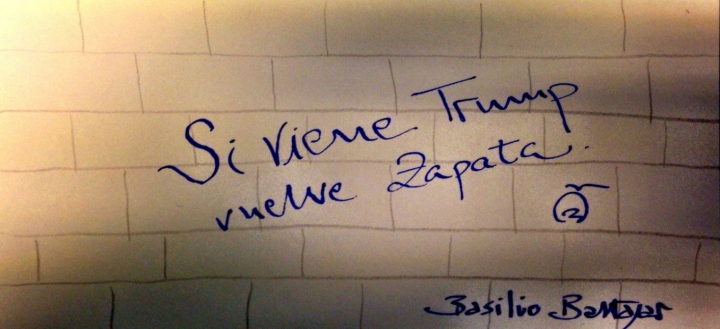 Si viene Trump
vuelve Zapata.
Basilio